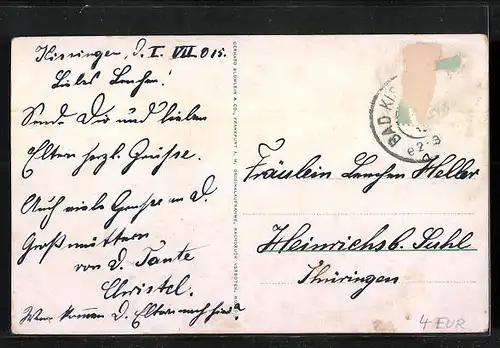 Kissingen, d. I. VII 015.
Liebes Lenchen!
Sende Dir und lieben
Eltern herzl. Grüsse.
Auch viele Grüsse an d.
Großmüttern
von d. Tante
Christel.
Wann kommen d. Eltern nach hier?
GERHARD BLÜMLEIN & CO., FRANKFURT A. M. ORIGINALAUFNAHME, NACHDRUCK VERBOTEN.
BAD KIS
8-9
Fräulein Lenchen Heller
Heinrichsb. Suhl
Thüringen
4 EUR